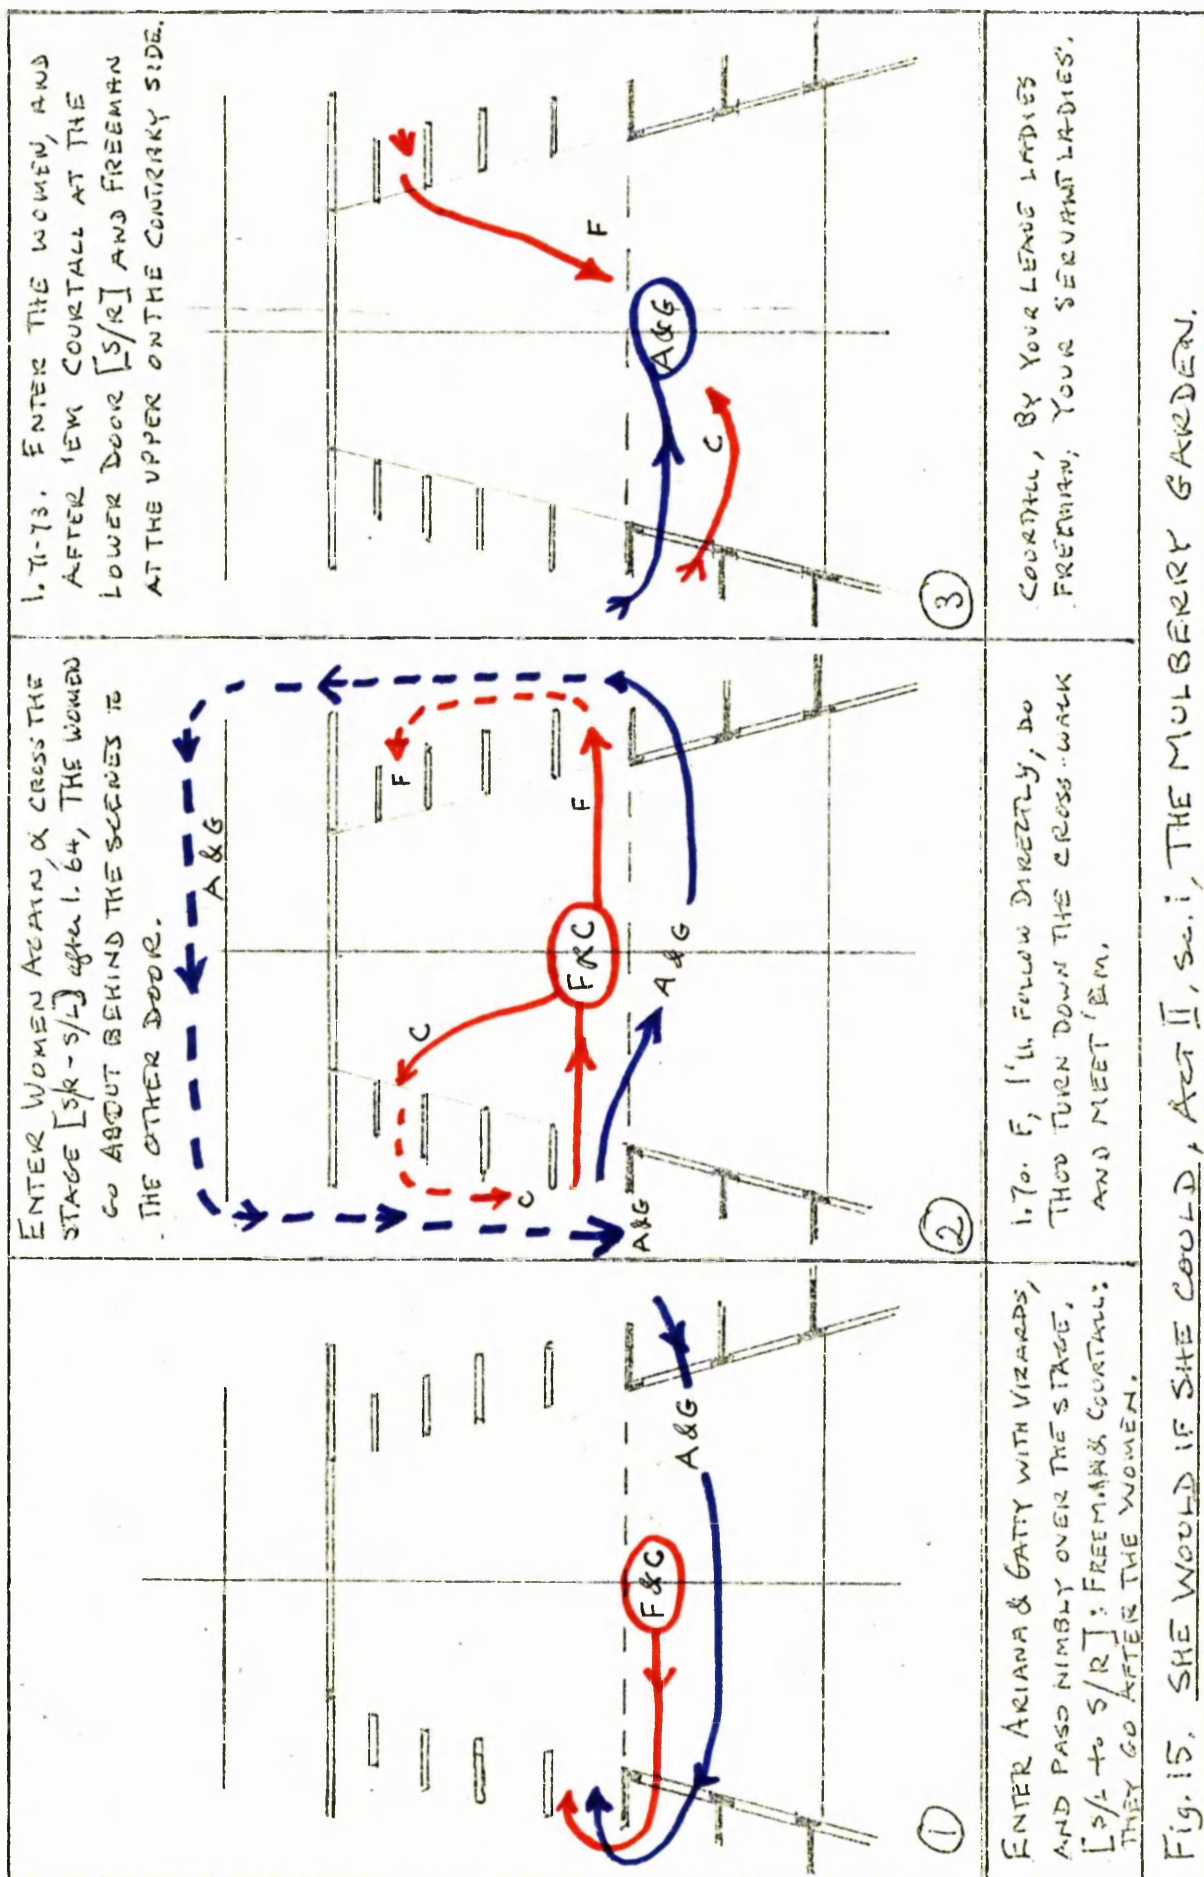 F&C
A&G
①
ENTER ARIANA & GATTY WITH VIZARDS,
AND PASS NIMBLY OVER THE STAGE.
[S/L to S/R]: FREEMAN & COURTALL:
THEY GO AFTER THE WOMEN.
ENTER WOMEN AGAIN, & CROSS THE
STAGE [S/R - S/L] after l. 64, THE WOMEN
GO ABOUT BEHIND THE SCENES TO
THE OTHER DOOR.
A & G
C
F
C
F&C
F
A&G
A & G
②
l. 70. F, I'LL FOLLOW DIRECTLY, DO
THOU TURN DOWN THE CROSS-WALK
AND MEET 'EM.
l. 71-73. ENTER THE WOMEN, AND
AFTER 'EM COURTALL AT THE
LOWER DOOR [S/R] AND FREEMAN
AT THE UPPER ON THE CONTRARY SIDE.
F
A&G
C
③
COURTALL, BY YOUR LEAVE LADIES
FREEMAN, YOUR SERVANT LADIES'.
Fig. 15. SHE WOULD IF SHE COULD, ACT II, sc. i, THE MULBERRY GARDEN.